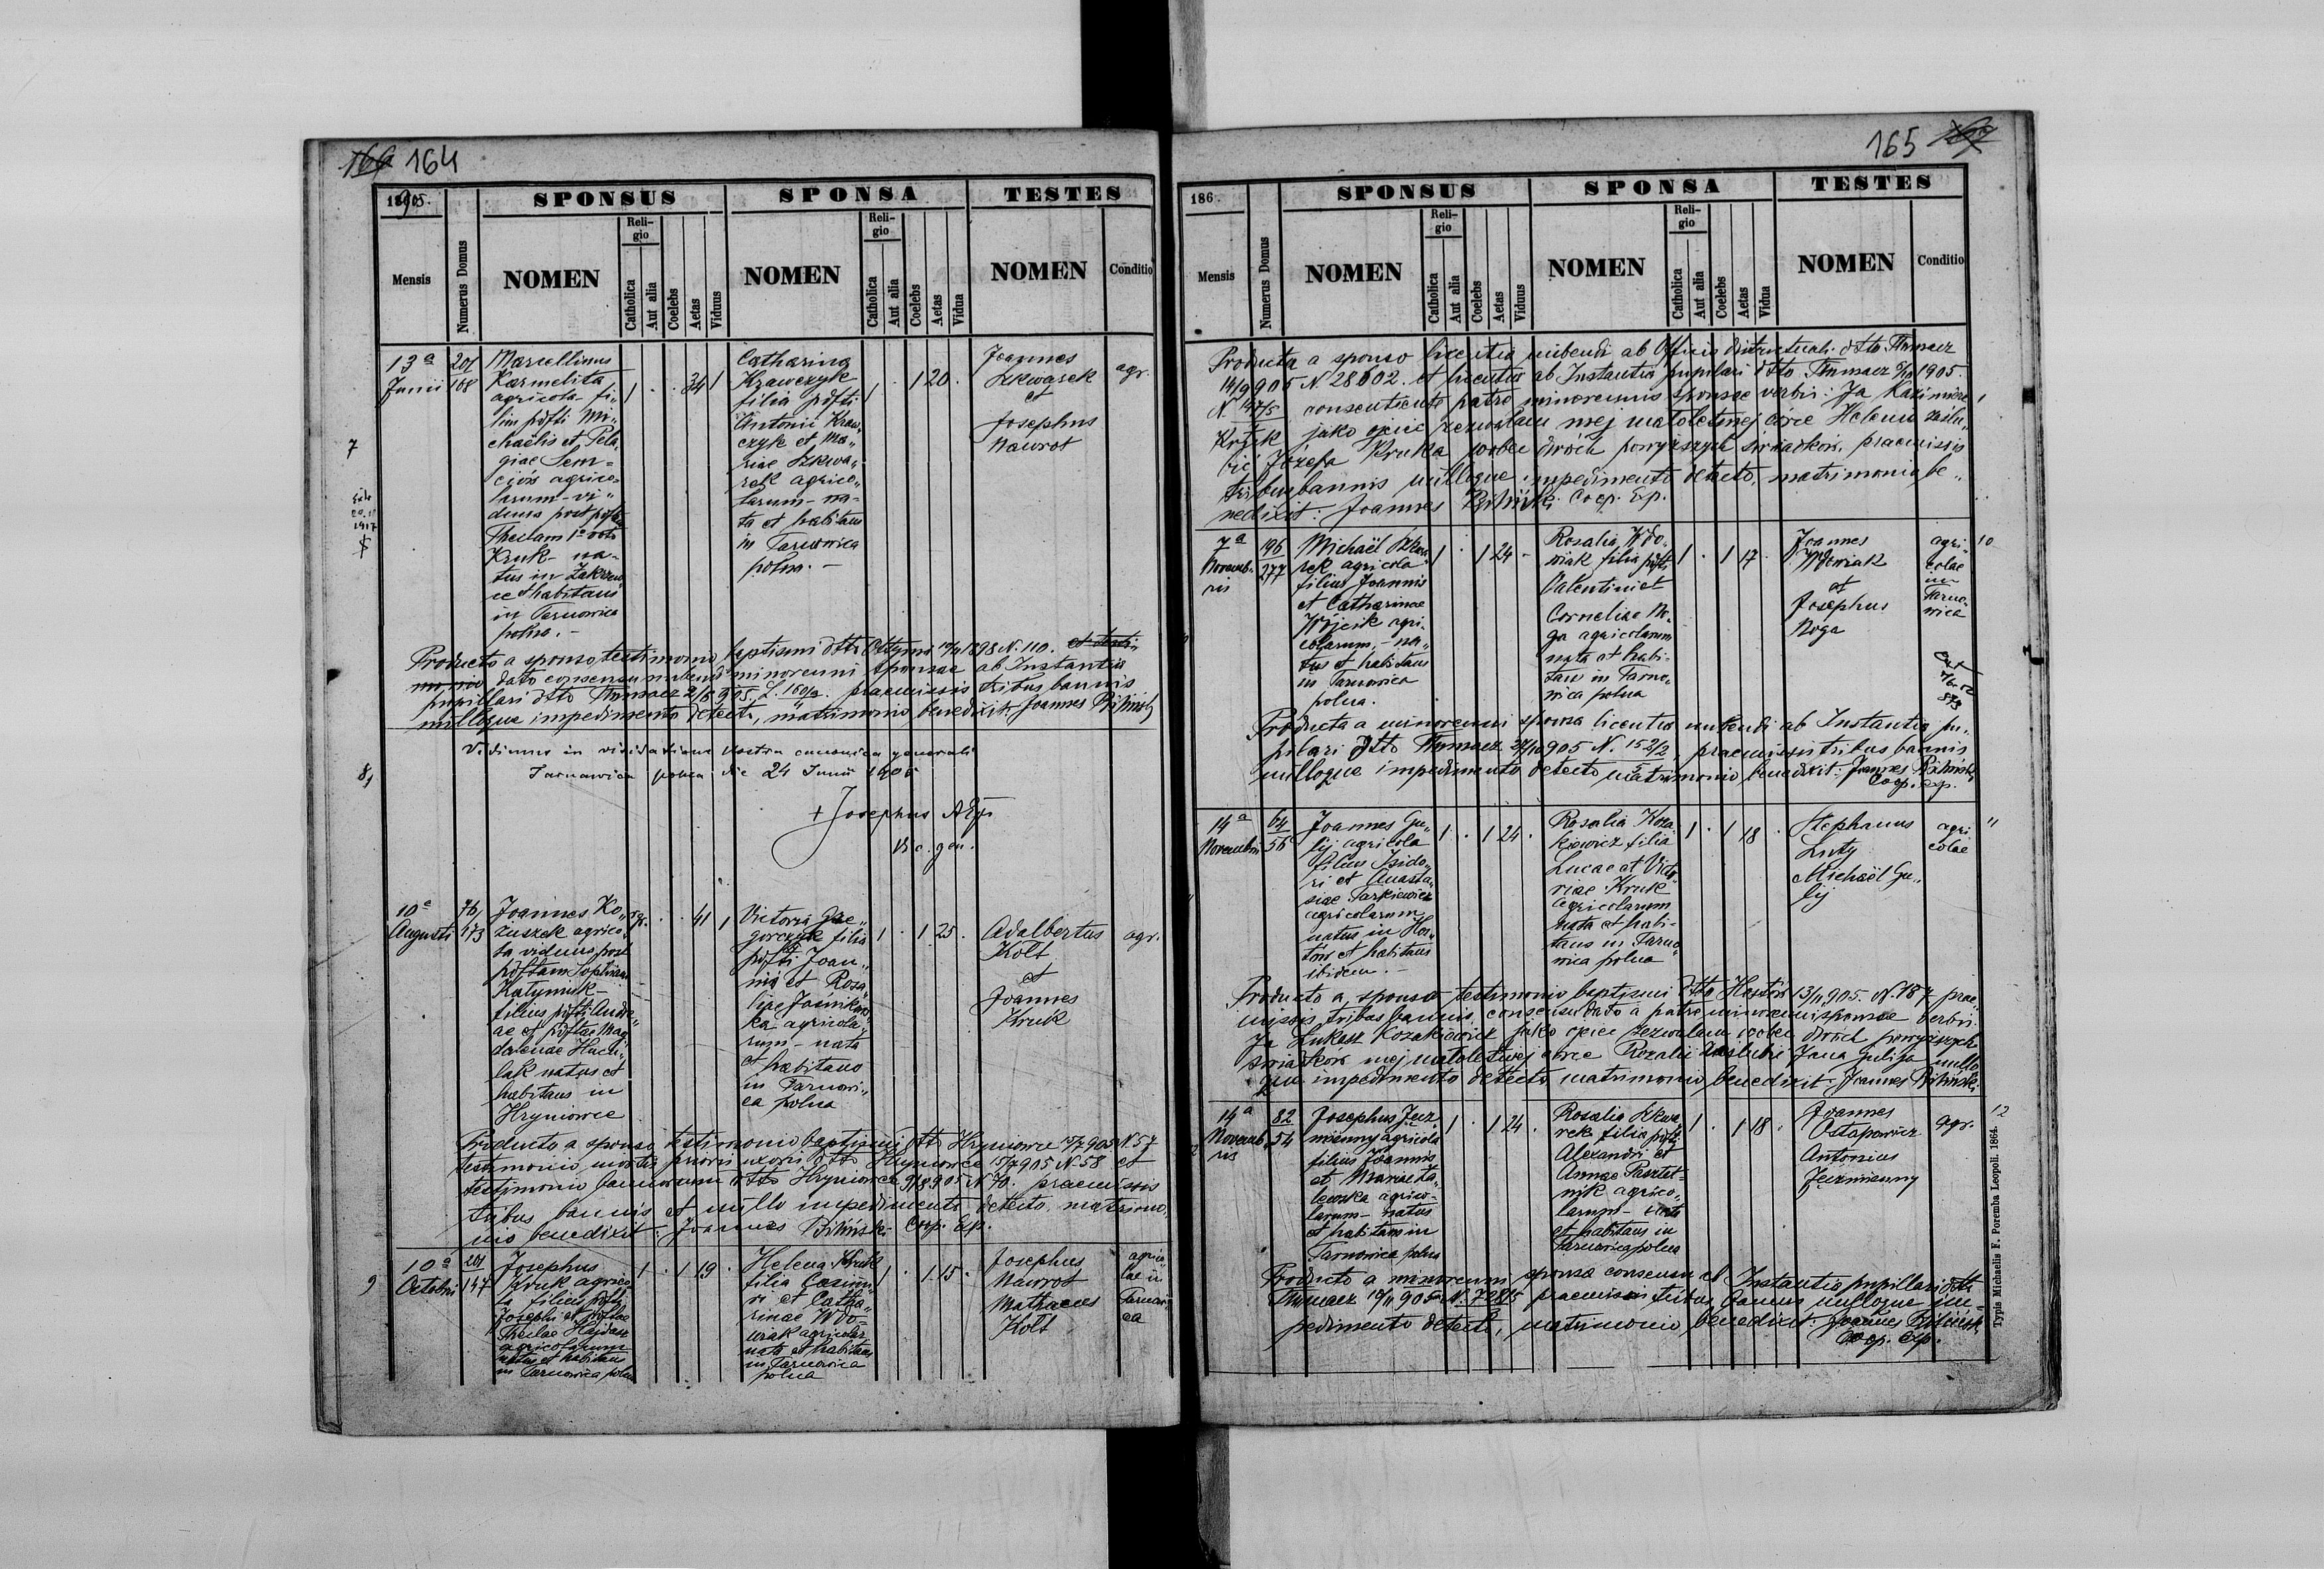 164
1905.
SPONSUS
SPONSA
TESTES
Mensis
Numerus Domus
NOMEN
Religio
Catholica
Aut alia
Coelebs
Aetas
Viduus
NOMEN
Religio
Catholica
Aut alia
Coelebs
Aetas
Vidua
NOMEN
Conditio
7
13a
Junii
201
168
Marcellinus
Karmelita
agricola fi„
lius pdfti Mi„
chaëlis et Pela„
giae Sem=
ciów agrico„
larum - vi„
duus post pdftam
Theclam 1o voto
Kruk - na=
tus in Zakrzew
ce et habitans
in Tarnowica
polna. -
1 . . 34 1
Catharina
Krawczyk
filia pdfti
Antonii Kraw„
czyk et Ma„
riae Szkwa„
rek agrico„
larum - na=
ta et habitans
in Tarnowica
polna. -
1 . 1 20 .
Joannes
Szkwarek
et
Josephus
Nawrot
agr.
Producto a sponso testimonio baptismi dtto Ottynia 1898 N. 110.
dato consensu nubendi minorenni sponsae ab Instantia
pupillari dtto Tłumacz 905 praemissis tribus bannis
nulloque impedimento detecto, matrimonio benedixit: Joannes Biliński
Vidimus in visitatione nostra canonica generali
Tarnowica polna die 24 Junii 1905
+ Josephus AEp
8
10a
Augusti
76
173
Joannes Ko„
żuszek agrico
la viduus post
pdftam Sophiam
Katymuk -
filius pdfti Andre„
ae et pdftae Mag„
dalenae Hucu„
lak natus et
habitans in
Hryniowce
. . 41 1
Victoria Grze„
gorczyk filia
pdfti Joan„
nis et Rosa„
liae Jasnikow
ka agricola„
rum - nata
et habitans
in Tarnowi„
ca polna
1 . 1 25 .
Adalbertus
Kolt
et
Joannes
Kruk
agr.
Producto a sponso testimonio baptismi dtto Hryniowce 905 N 57
testimonio mortis prioris uxoris dtto Hryniowce 905 N. 58 et
testimonio bannorum dtto Hryniowce 9/8 905 N 70. praemissis
tribus bannis et nullo impedimento detecto matrimo„
nio benedixit: Joannes Biliński Coop. Exp.
9
10a
Octobris
201
147
Josephus
Kruk agrico
la filius pdfti
Josephi et pdftae
Theclae Hajdasz
agricolarum
natus et habitans
in Tarnowica polna
1 . 1 19 .
Helena Kruk
filia Casimi„
ri et Catha„
rinae Wdo=
wiak agricolar.
nata et habitans
in Tarnowica
polna
1 . 1 15 .
Josephus
Nawrot
Mathaeus
Kolt
agrico„
lae in
Tarnowi
ca
165
186
SPONSUS
SPONSA
TESTES
Mensis
Numerus Domus
NOMEN
Religio
Catholica
Aut alia
Coelebs
Aetas
Viduus
NOMEN
Religio
Catholica
Aut alia
Coelebs
Aetas
Vidua
NOMEN
Conditio
Producta a sponso licentia nubendi ab Officio districtuali dtto Tłumacz
14/9 905 N 28602. et licentia ab Instantia pupilari dtto Tłumacz 1905.
N 147/5 consentiente patre minorennis sponsae verbis: Ja Kazimierz
Kruk jako ojciec zezwalam mej małoletniej córce Helenie zaślu„
bić Józefa Kruka wobec dwóch powyższych świadków. praemissis
tribus bannis nulloque impedimento detecto, matrimonio be„
nedixit: Joannes Biliński Coop. Exp.
7a
Novemb.
ris
196
277
Michaël Szkwa
rek agricola
filius Joannis
et Catharinae
Wójcik agri„
colarum, - na„
tus et habitans
in Tarnowica
polna.
1 . 1 24 -
Rosalia Wdo„
wiak filia pdfti
Valentini et
Corneliae No„
ga agricolarum
nata et habi=
tans in Tarno„
wica polna
1 . 1 17 .
Joannes
Wdowiak
et
Josephus
Noga
agri„
colae
in
Tarno„
wica
10
Producta a minorenni sponsa licentia nubendi ab Instantia pu„
pilari dtto Tłumacz 905 N. 152/2 praemissis tribus bannis
nulloque impedimento detecto matrimonio benedixit: Joannes Biliński
Coop. Exp.
14a
Novembris
64
56
Joannes Gu„
lij agricola
filius Isido„
ri et Anasta„
siae Tarkiewicz
agricolarum
natus in Hos„
tów et habitans
ibidem. -
1 . 1 24 .
Rosalia Koza
kiewicz filia
Lucae et Victo
riae Kruk
agricolarum
nata et habi=
tans in Tarno
wica polna
1 . 1 18 .
Stephanus
Luty
Michaël Gu„
lij
agri„
colae
11
Producto a sponso testimonio baptismi dtto Hostów 13/11 905. N. 187 prae„
missis tribus bannis, consensu dato a patre minorenni sponsae verbis:
Ja Łukasz Kozakiewicz jako ojciec zezwalam wobec dwóch powyższych
świadków mej małoletniej córce Rozalii zaślubić Jana Gulija nullo„
que impedimento detecto matrimonio benedixit: Joannes Biliński
14a
Novemb„
ris
82
54
Josephus Jecz„
mienny agricola
filius Joannis
et Mariae Ła„
lewska agrico=
larum - natus
et habitans in
Tarnowica polna
1 . 1 24 .
Rosalia Szkwa
rek filia pdfti
Alexandri et
Annae Pasztet=
nik agrico„
larum - nata
et habitans in
Tarnowica polna
1 . 1 18 .
Joannes
Ostapowicz
Antonius
Jeczmienny
agr.
12
Producto a minorenni sponsa consensu ab Instantia pupillari dtto
Tłumacz 905 N. 728/5 praemissis tribus bannis nulloque im„
pedimento detecto, matrimonio benedixit: Joannes Biliński
Coop. Exp.
Typis Michaelis F. Poremba Leopoli. 1864.